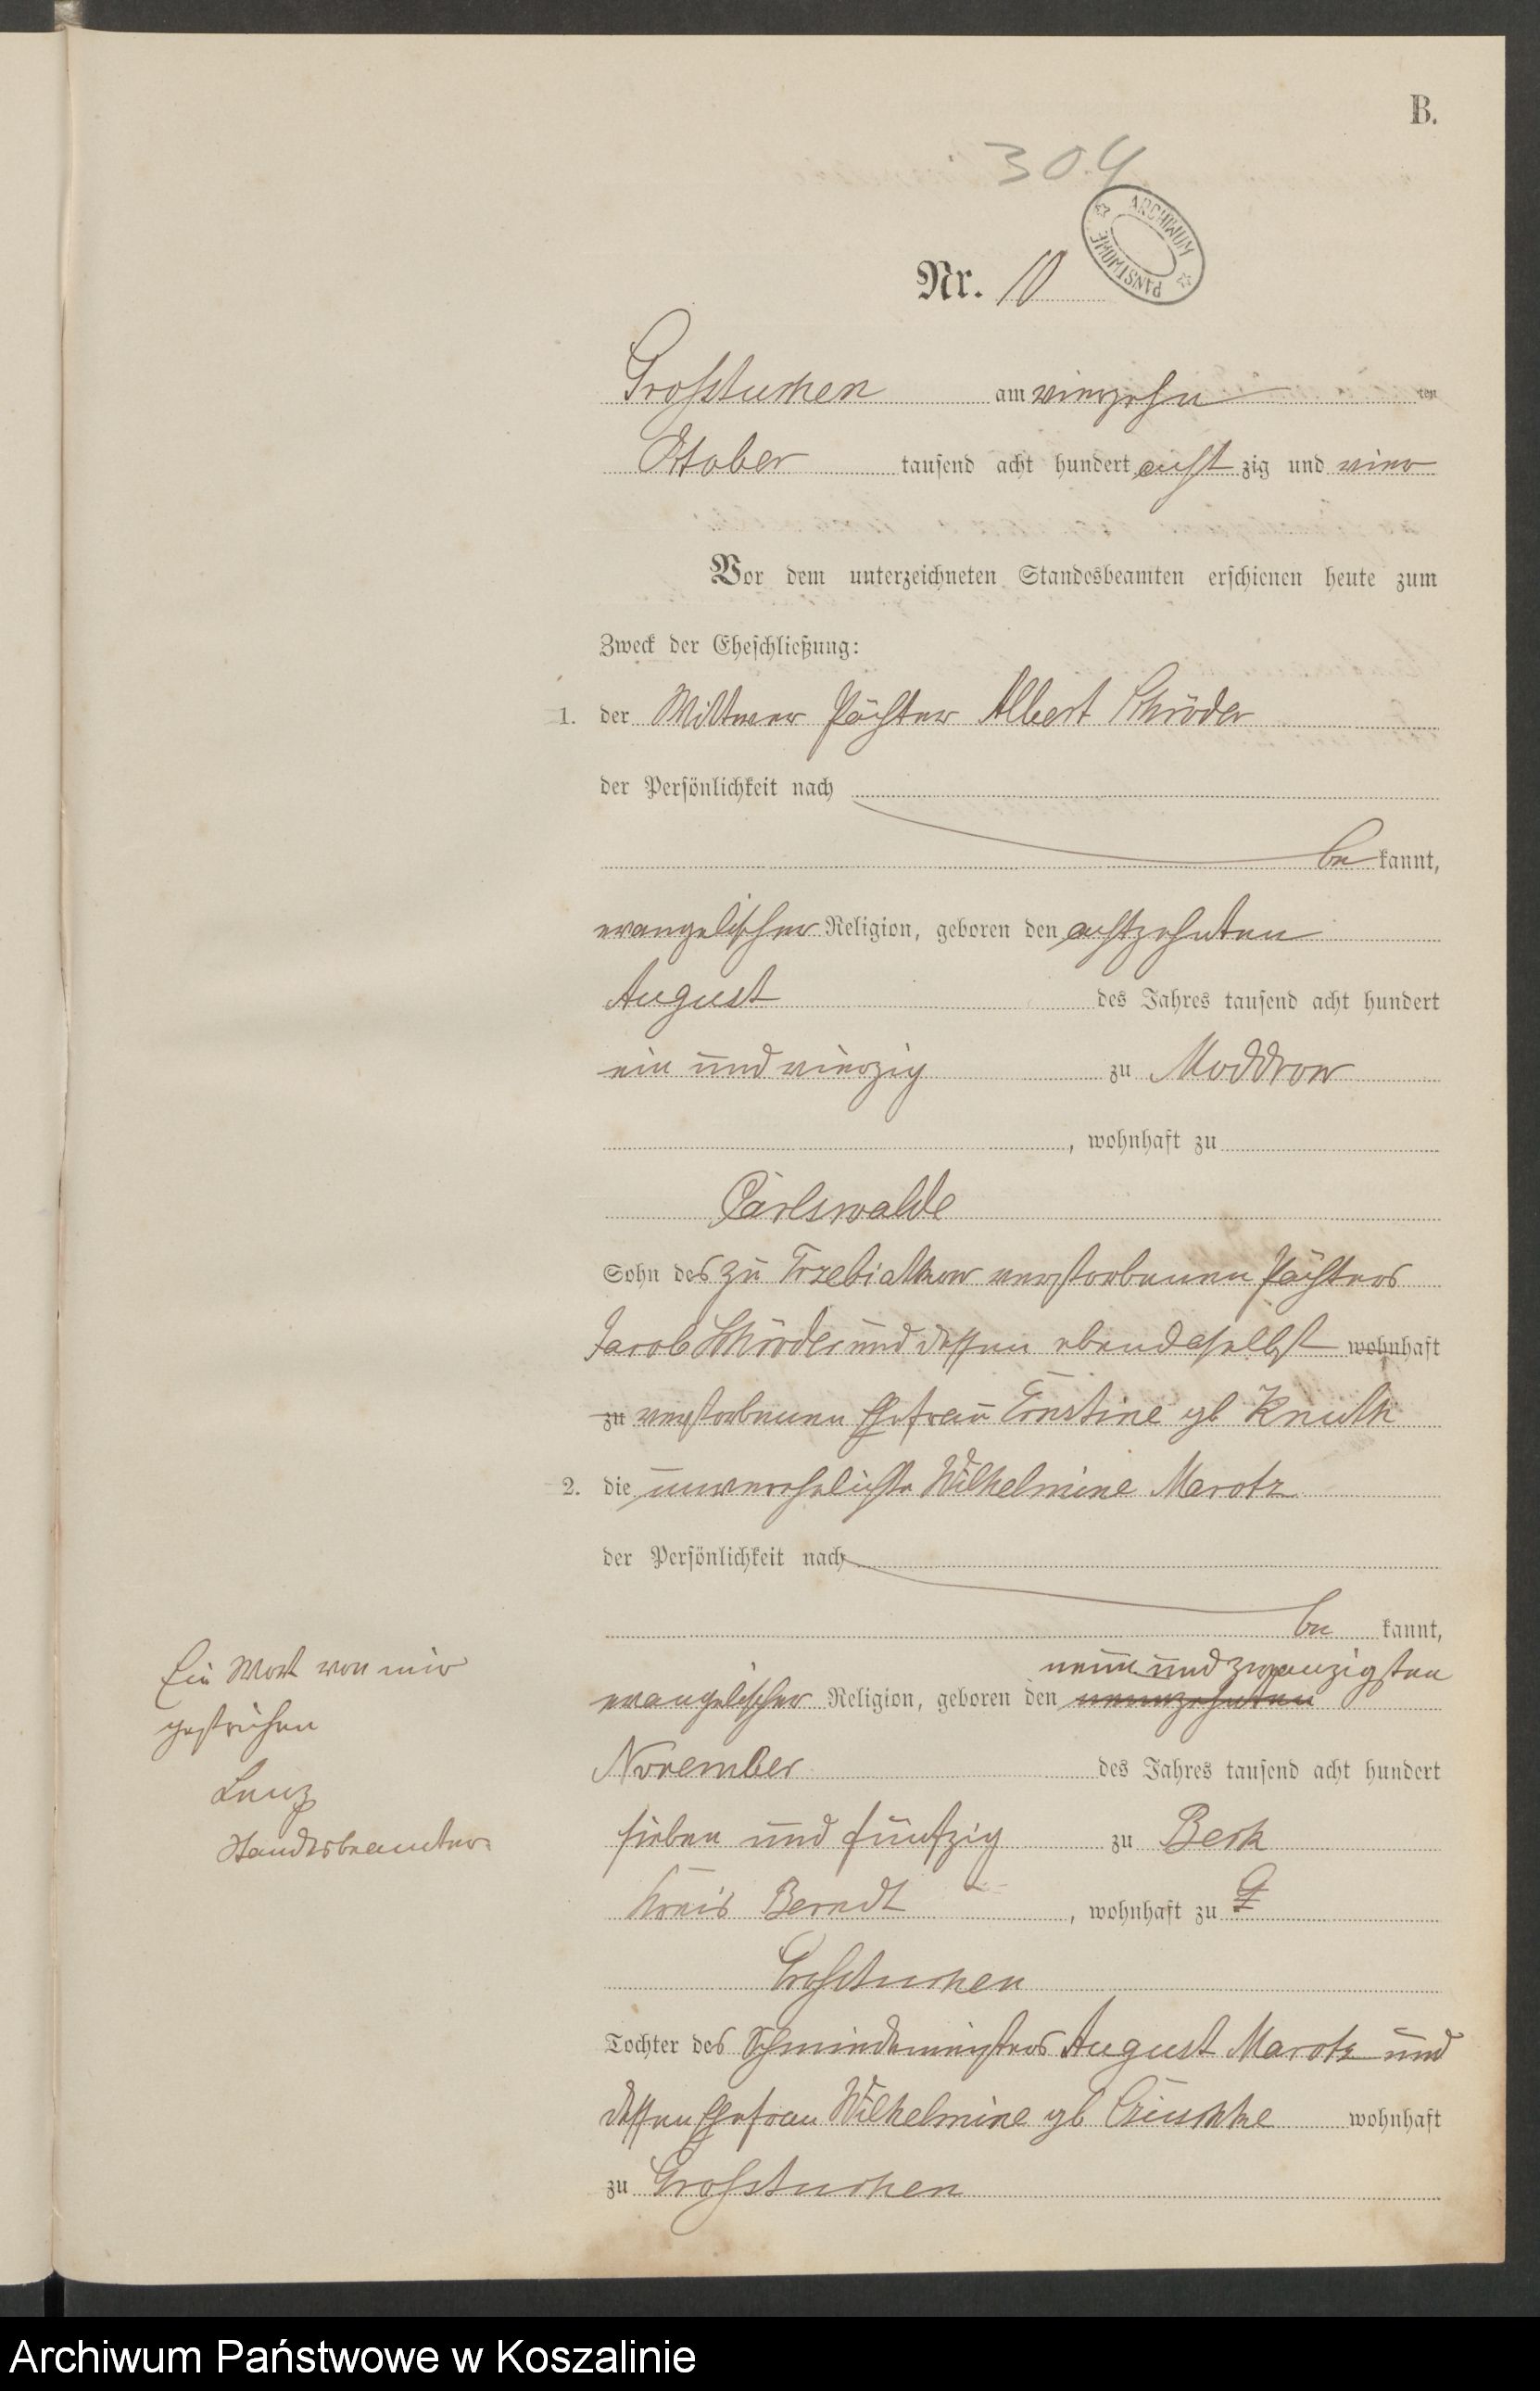 B.
304
ARCHIWUM PAŃSTWOWE
Nr. 10
Großtuchen am vierzehn ten
October tausend acht hundert acht zig und vier
Vor dem unterzeichneten Standesbeamten erschienen heute zum
Zweck der Eheschließung:
1. der Wittwer Pächter Albert Schröder
der Persönlichkeit nach
be kannt,
evangelischer Religion, geboren den achtzehnten
August des Jahres tausend acht hundert
ein und vierzig zu Moddrow
, wohnhaft zu
Carlswalde
Sohn des zu Trzebiatkow verstorbenen Pächters
Jacob Schröder und dessen ebendaselbst wohnhaft
zu verstorbenen Ehefrau Ernstine gb Knuth
2. die unverehelichte Wilhelmine Marotz
der Persönlichkeit nach
be kannt,
neun und zwanzigsten
evangelischer Religion, geboren den neunzehnten
November des Jahres tausend acht hundert
sieben und fünfzig zu Berk
Kreis Berndt , wohnhaft zu G
Großtuchen
Tochter des Schmiedemeisters August Marotz und
dessen Ehefrau Wilhelmine gb wohnhaft
zu Großtuchen
Ein Wort von mir
gestrichen
Lenz
Standesbeamter.
Archiwum Państwowe w Koszalinie